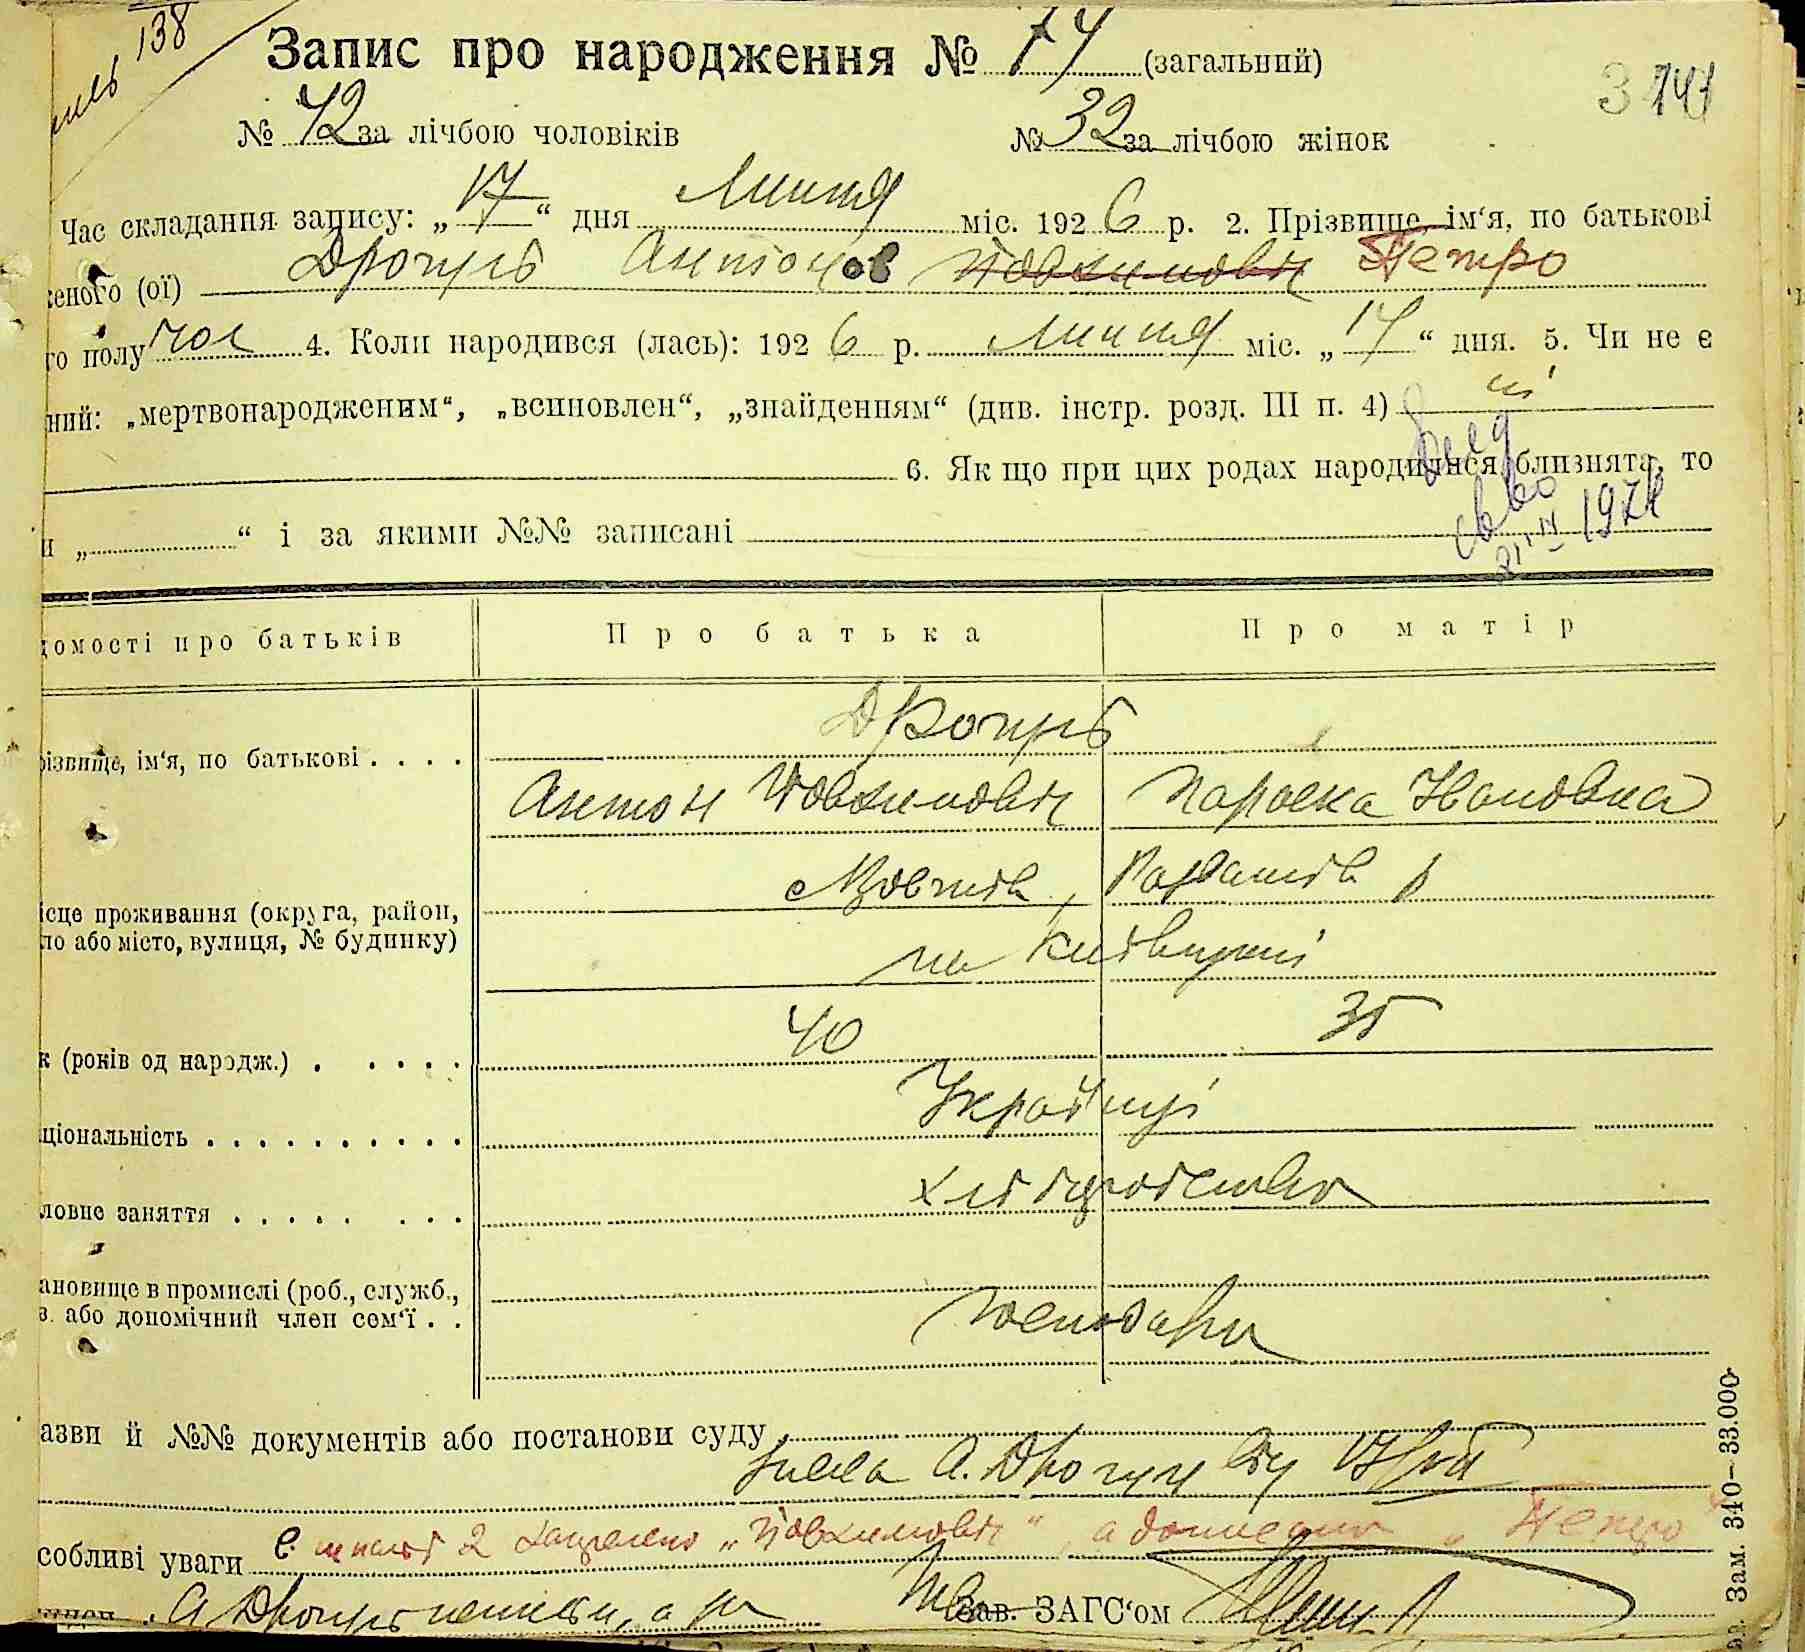 138
Запис про народження № 74 (загальний)
№ 42 за лічбою чоловіків № 32 за лічбою жінок
Час складання запису: „17“ дня Липня міс. 1926 р. 2. Прізвище, ім‘я, по батькові
еного (ої) Дрогуль Антонов Йовхимович Петро
го полу чол 4. Коли народився (лась): 1926 р. Липня міс. „14“ дня. 5. Чи не є
ний: „мертвонародженим“, „всиновлен“, „знайденням“ (див. інстр. розд. III п. 4) ні
6. Як що при цих родах народилися близнята, то
и „ “ і за якими №№ записані
1974
домості про батьків Про батька Про матір
Дрогуль
різвище, ім‘я, по батькові
Антон Йовхимович Параска Івановна
ісце проживання (округа, район,
ло або місто, вулиця, № будинку)
на Київщині
40 35
к (років од народж.)
Українці
ціональність
хліборобство
ловне заняття
ановище в промислі (роб., служб.,
в. або допомічний член сем‘ї
господари
азви й №№ документів або постанови суду
А. Дрогуль
собливі уваги в пункті 2 закреслено „Йовхимович“, а дописано „Петро“
А Дрогуль Зав. ЗАГС‘ом
Зам. 340–33.000